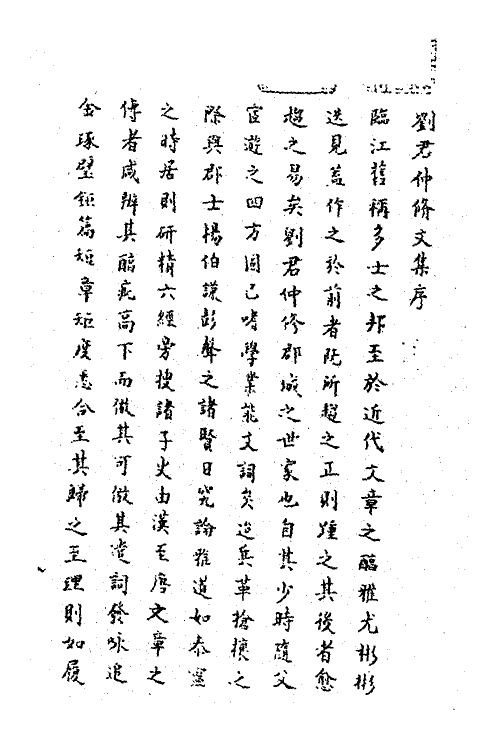 劉君仲脩文集序
臨江舊稱多士之邦至於近代文章之醞雅尤彬彬
迭見蓋作之於前者既所趨之正則踵之其後者愈
趨之易矣劉君仲修郡城之世家也自其少時隨父
宦遊之四方固已嗜學業能文詞矣迨兵革搶攘之
際與郡士楊伯謙彭聲之諸賢日究論雅道如泰靈
之時居則研精六經旁搜諸子史由漢至唐文章之
傳者咸辨其醕疵高下而倣其可倣其造詞發咏追
金琢璧鉅篇短章矩度悉合至其歸之至理則如履